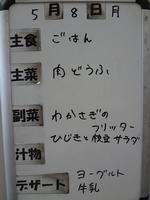 5月8日月
主食 ごはん
主菜 肉どうふ
副菜 わかさぎの
フリッター
ひじきと枝豆サラダ
汁物
デザート ヨーグルト
牛乳